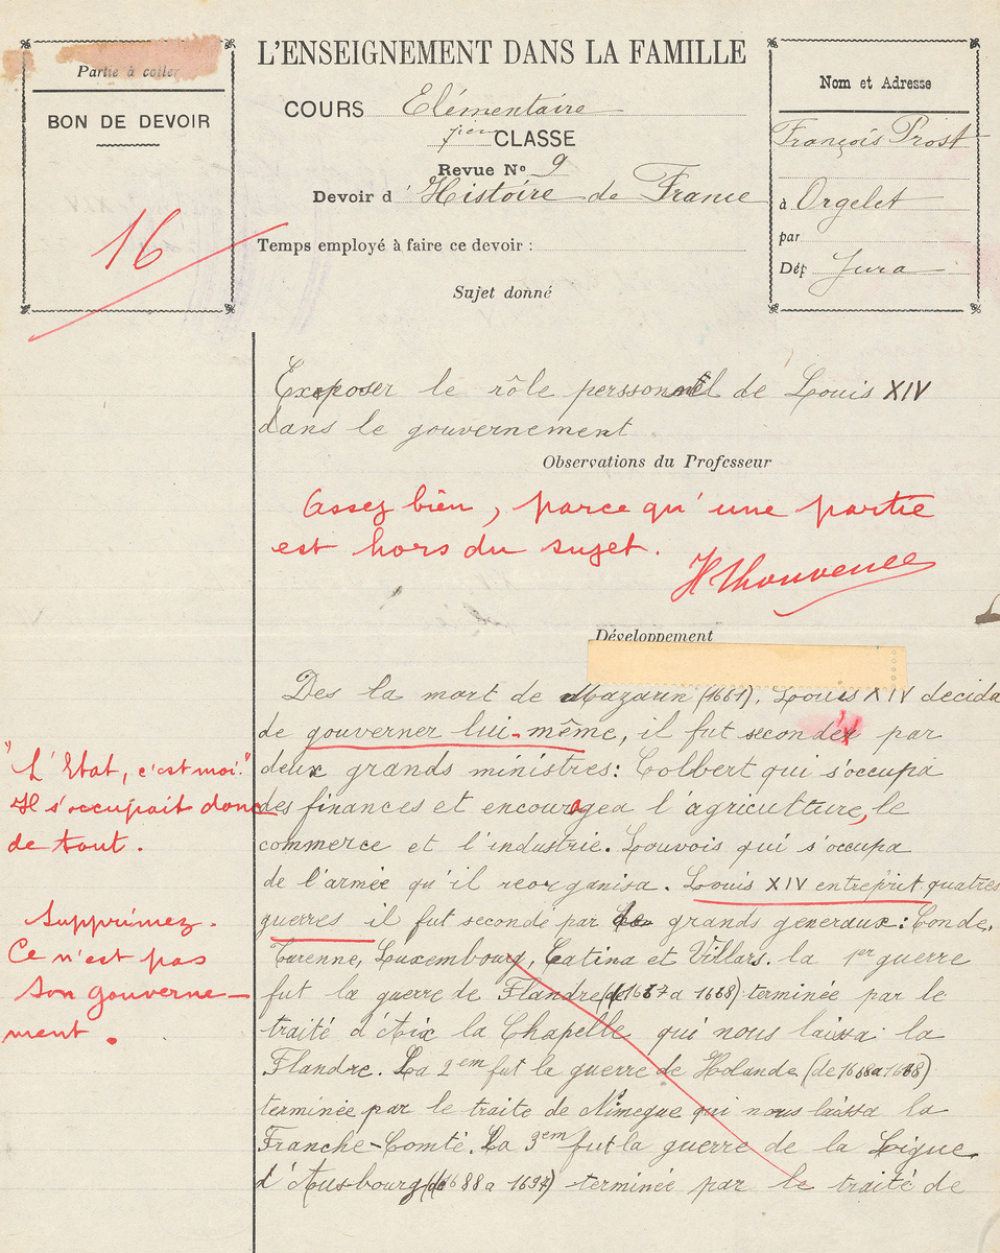 Partie à coller
BON DE DEVOIR
16
L'ENSEIGNEMENT DANS LA FAMILLE
COURS Elémentaire
1ière CLASSE
Revue No 9
Devoir d' Histoire de France
Temps employé à faire ce devoir :
Sujet donné
Nom et Adresse
François Prost
à Orgelet
par
Dép Jura
Exposer le rôle perssonnel de Louis XIV
dans le gouvernement
Observations du Professeur
Assez bien, parce qu'une partie
est hors du sujet.
Développement
Des la mort de Mazarin (1661), Louis XIV decida
de gouverner lui-même, il fut secondé par
deux grands ministres: Colbert qui s'occupa
des finances et encouragea l'agriculture, le
commerce et l'industrie. Louvois qui s'occupa
de l'armée qu'il reorganisa. Louis XIV entreprit quatres
guerres il fut seconde par de grands generaux: Conde,
Turenne, Luxembourg, Catina et Villars. la 1er guerre
fut la guerre de Flandre (de 1667 a 1668) terminée par le
traité d'Aix la Chapelle qui nous laissa la
Flandre. La 2em fut la guerre de Holande (de 1668 a 1668)
terminée par le traite de Nimegue qui nous laissa la
Franche-Comté. La 3em fut la guerre de la Ligue
d'Ausbourg (de 1688 a 1697) terminée par le traité de
"L'Etat, c'est moi."
Il s'occupait donc
de tout.
Supprimez.
Ce n'est pas
son gouverne-
ment.